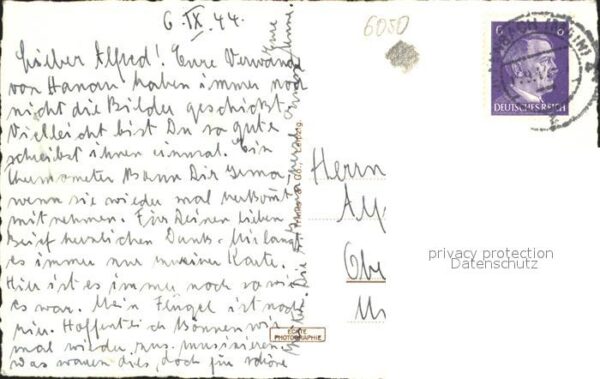 6. IX. 44.
Lieber Alfred! Eure Verwand
von Hanau haben immer noch
nicht die Bilder geschickt.
Vielleicht bist Du so gut u.
schreibst ihnen einmal. Ein
Thermometer kann Dir Irma
wenn sie wieder mal
mitnehmen. Für Deinen lieben
Brief herzlichen Dank.
es immer nur zu einer Karte.
Hier ist es immer noch so wie
es war. Mein Flügel ist noch
hier. Hoffentlich können wir
mal wieder zus. musizieren
was waren dies, doch für schöne
Die
Eure
Leipzig.
6050
DEUTSCHES REICH
Herrn
Al
Obe
ECHTE
PHOTOGRAPHIE
privacy protection
Datenschutz